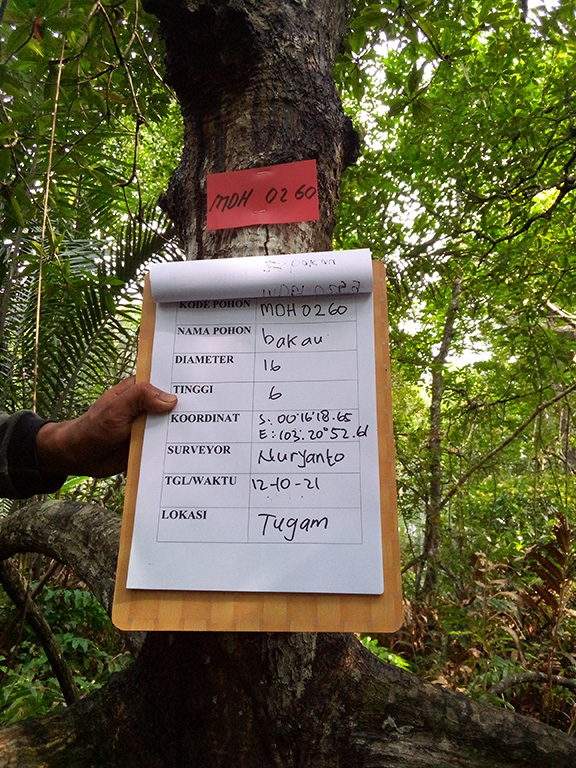 MDH 0260
KODE POHON MDH 0260
NAMA POHON bakau
DIAMETER 16
TINGGI 6
KOORDINAT S: 00°16'18.65
E: 103°.20'52.61
SURVEYOR Nuryanto
TGL/WAKTU 12-10-21
LOKASI Tugam